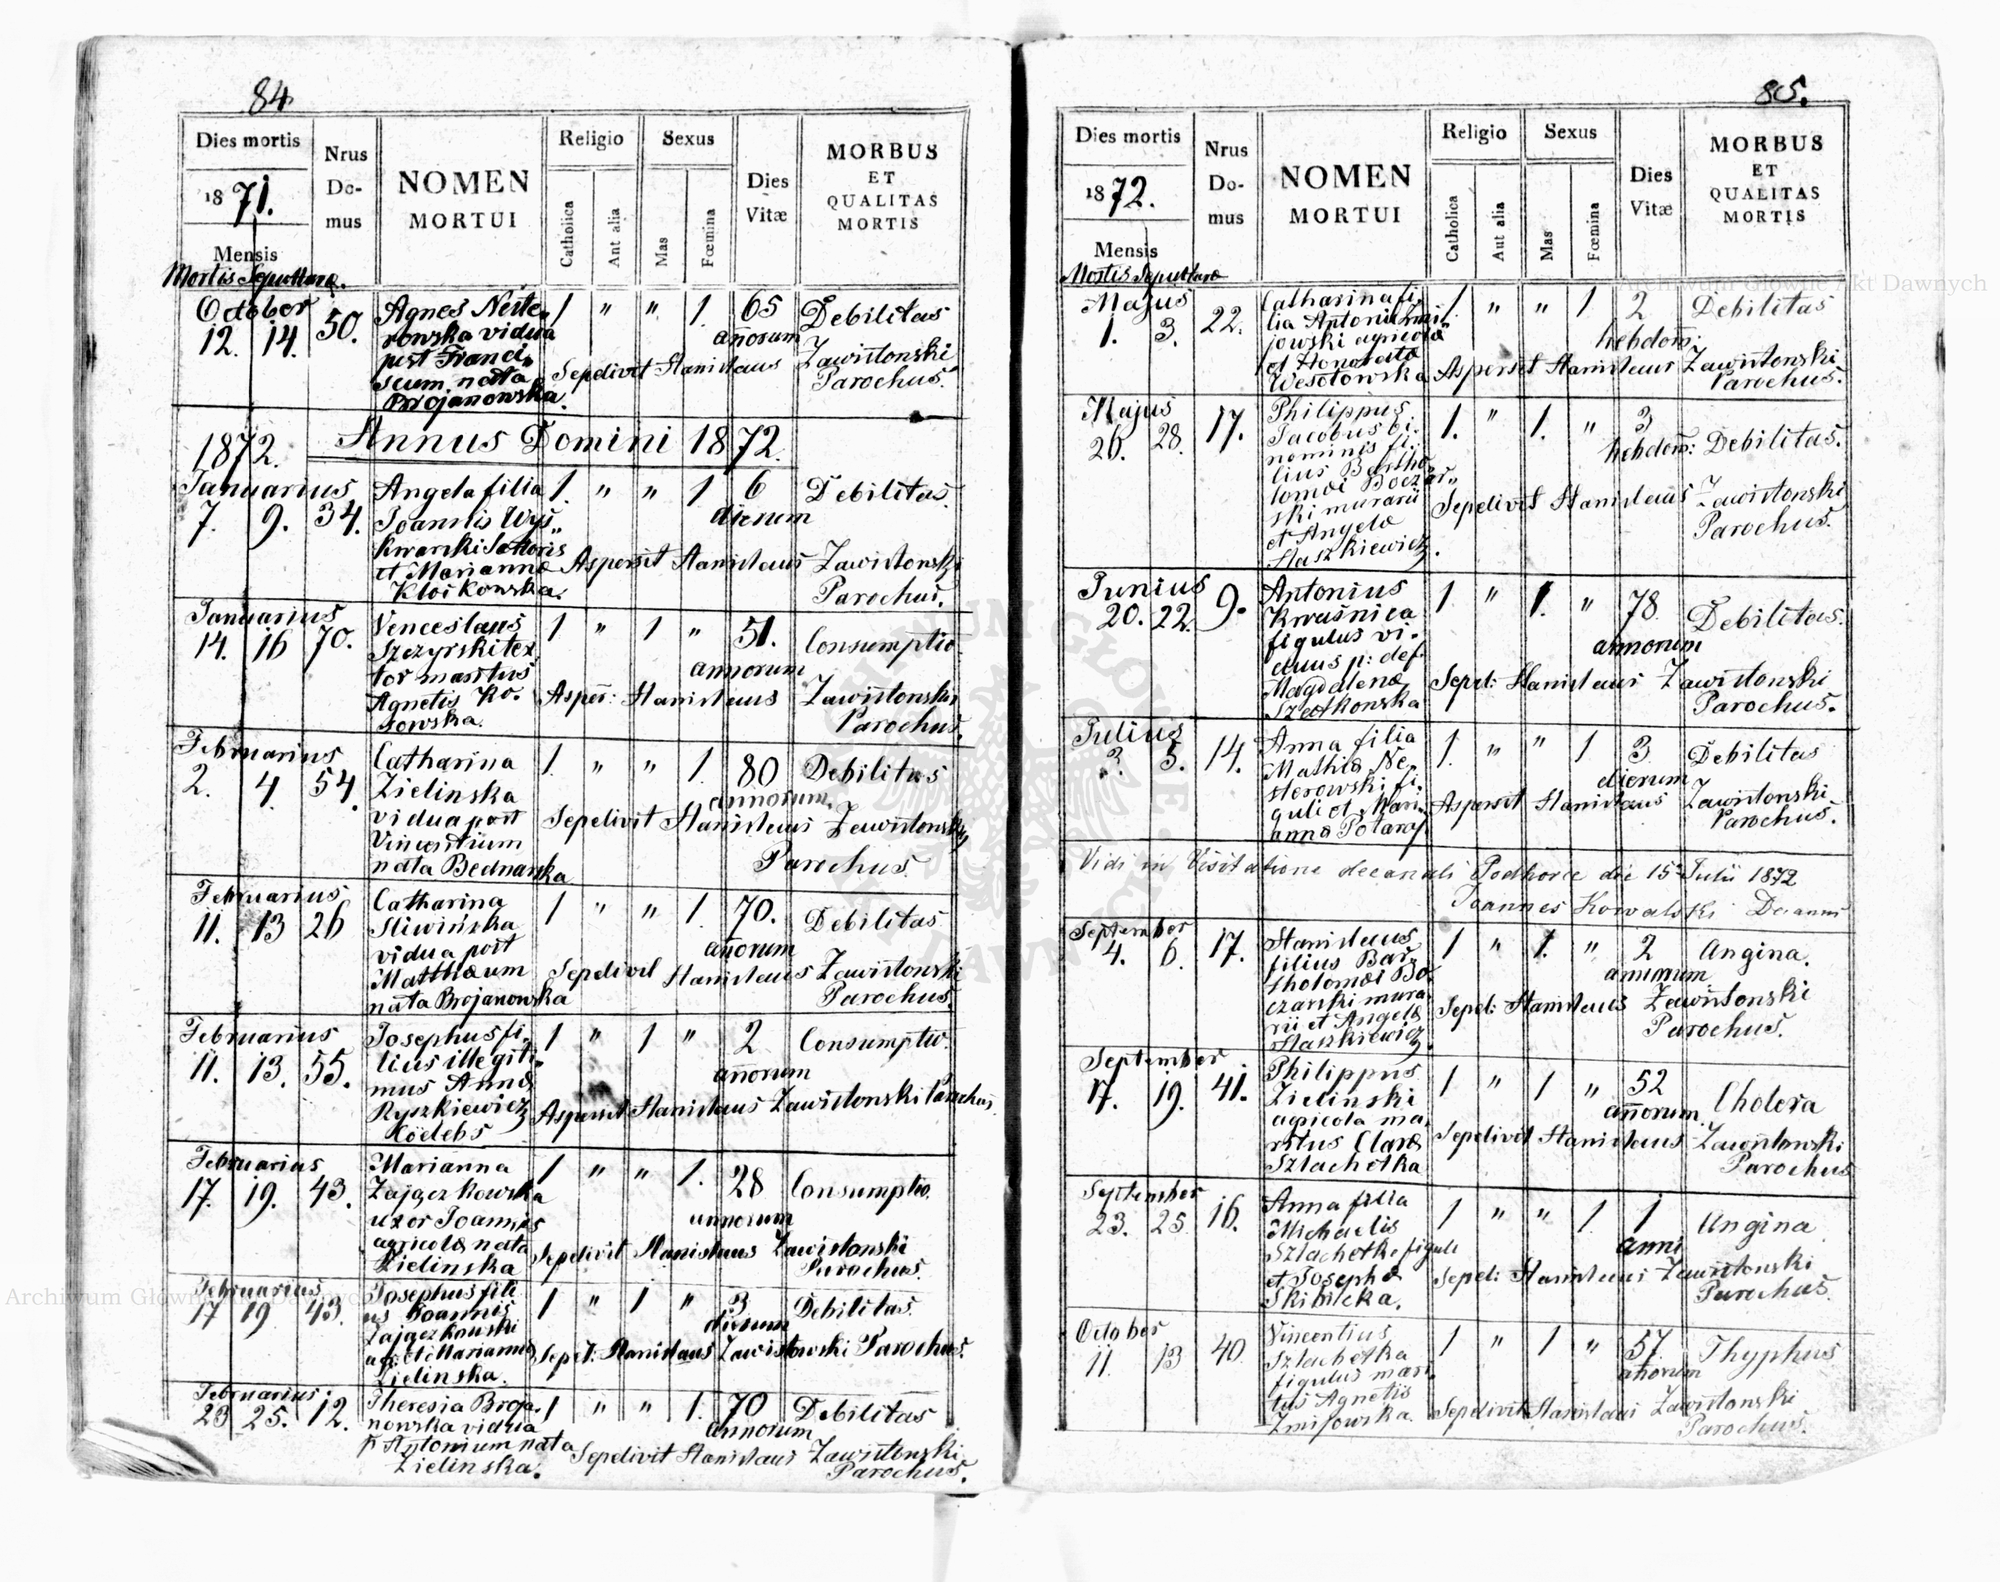 84
Dies mortis
1871.
Mensis
Mortis Sepulturæ.
Nrus
Do-
mus
NOMEN
MORTUI
Religio
Catholica
Aut alia
Sexus
Mas
Fœmina
Dies
Vitæ
MORBUS
ET
QUALITAS
MORTIS
October
12. 14. 50.
Agnes Neste„
rowska vidua
post Franci„
scum nata
Brojanowska.
1 " " 1. 65
annorum
Debilitas
Sepelivit Stanislaus Zawistonski
Parochus.
1872. Annus Domini 1872.
Januarius
7. 9. 34.
Angela filia
Joannis Wys„
Kwarski Sutoris
et Marianna
Kloskowska.
1. " " 1 6
dierum
Debilitas.
Aspersit Stanislaus Zawistonski
Parochus.
Januarius
14. 16 70.
Venceslaus
Szczyrski tex
tor maritus
Agnetis Ko.
sowska.
1 " 1 " 51.
annorum
Consumptio
Asper: Stanislaus Zawistonski
Parochus.
Februarius
2. 4. 54.
Catharina
Zielinska
vidua post
Vincentium
nata Bednarska
1. " " 1. 80
annorum.
Debilitas
Sepelivit Stanislaus Zawistonski
Parochus.
Februarius
11. 13 26
Catharina
Sliwińska
vidua post
Matthæum
nata Brojanowska
1 " " 1. 70.
annorum
Debilitas
Sepelivit Stanislaus Zawistonski
Parochus.
Februarius
11. 13. 55.
Josephus fi.
lius illegiti.
mus Anna
Ryszkiewicz
Cœlebs
1 " 1 " 2
annorum
Consumptio.
Aspersit Stanislaus Zawistonski Parochus.
Februarius
17. 19. 43.
Marianna
Zajączkowska
uxor Joannis
agricolæ nata
Zielinska
1 " " 1. 28
annorum
Consumptio.
Sepelivit Stanislaus Zawistonski
Parochus.
Februarius
17 19 43.
Josephus fili
us Joannis
Zajączkowski
agr. et Marianna
Zielinska.
1 " 1 " 3
dierum
Debilitas.
Sepel: Stanislaus Zawistowski Parochus.
Februarius.
23 25. 12.
Theresia Broja.
nowska vidua
p Antonium nata
Zielinska.
1 " " 1. 70
annorum
Debilitas
Sepelivit Stanislaus Zawistonski
Parochus.
85.
Dies mortis
1872.
Mensis
Mortis Sepulturæ
Nrus
Do-
mus
NOMEN
MORTUI
Religio
Catholica
Aut alia
Sexus
Mas
Fœmina
Dies
Vitæ
MORBUS
ET
QUALITAS
MORTIS
Majus
1. 3. 22.
Catharina fi.
lia Antonii
jowski agricolæ
et Honorata
Wesołowska
1. " " 1 2
hebdom:
Debilitas
Aspersit Stanislaus Zawistonski
Parochus.
Majus
26. 28. 17.
Philippus
Jacobus bi.
nominis fi.
lius Bartho„
lomæi Boczar„
ski murarii
et Angela
Staszkiewicz.
1. " 1. " 3
hebdom:
Debilitas.
Sepelivit Stanislaus Zawistonski
Parochus.
Junius
20. 22. 9.
Antonius
Kwaśnica
figulus vi.
duus p: def.
Magdalena
Szlotkowska
1 " 1. " 78
annorum
Debilitas.
Sepel: Stanislaus Zawistonski
Parochus.
Julius
3. 5. 14.
Anna filia
Mathiæ Ne„
sterowski fi.
guli et Mari„
anna
1. " " 1 3
dierum
Debilitas
Aspersit Stanislaus Zawistonski
Parochus.
Vidi in Visitatione decanali Podhorce die 15 Julii 1872
Joannes Kowalski Decanus
September
4. 6. 17.
Stanislaus
filius Bar„
tholomæi Bo„
czarski mura„
rii et Angela
Staszkiewicz.
1 " 1. " 2
annorum
Angina.
Sepel: Stanislaus Zawistonski
Parochus.
September
17. 19. 41.
Philippus
Zielinski
agricola ma.
ritus Clara
Szlachetka
1 " 1 " 52
annorum
Cholera
Sepelivit Stanislaus Zawistonski
Parochus
September
23. 25 16.
Anna filia
Michaelis
Szlachetka figuli
et Josepha
Skibicka.
1 " " 1 1
anni
Angina
Sepel: Stanislaus Zawistonski
Parochus.
October
11. 13 40
Vincentius
Szlachetka
figulus mari.
tus Agnetis
Zmijowska.
1 " 1 " 57.
annorum
Thyphus
Sepelivit Stanislaus Zawistonski
Parochus.
Archiwum Główne Akt Dawnych
Archiwum Główne Akt Dawnych
ARCHIWUM GŁÓWNE AKT DAWNYCH